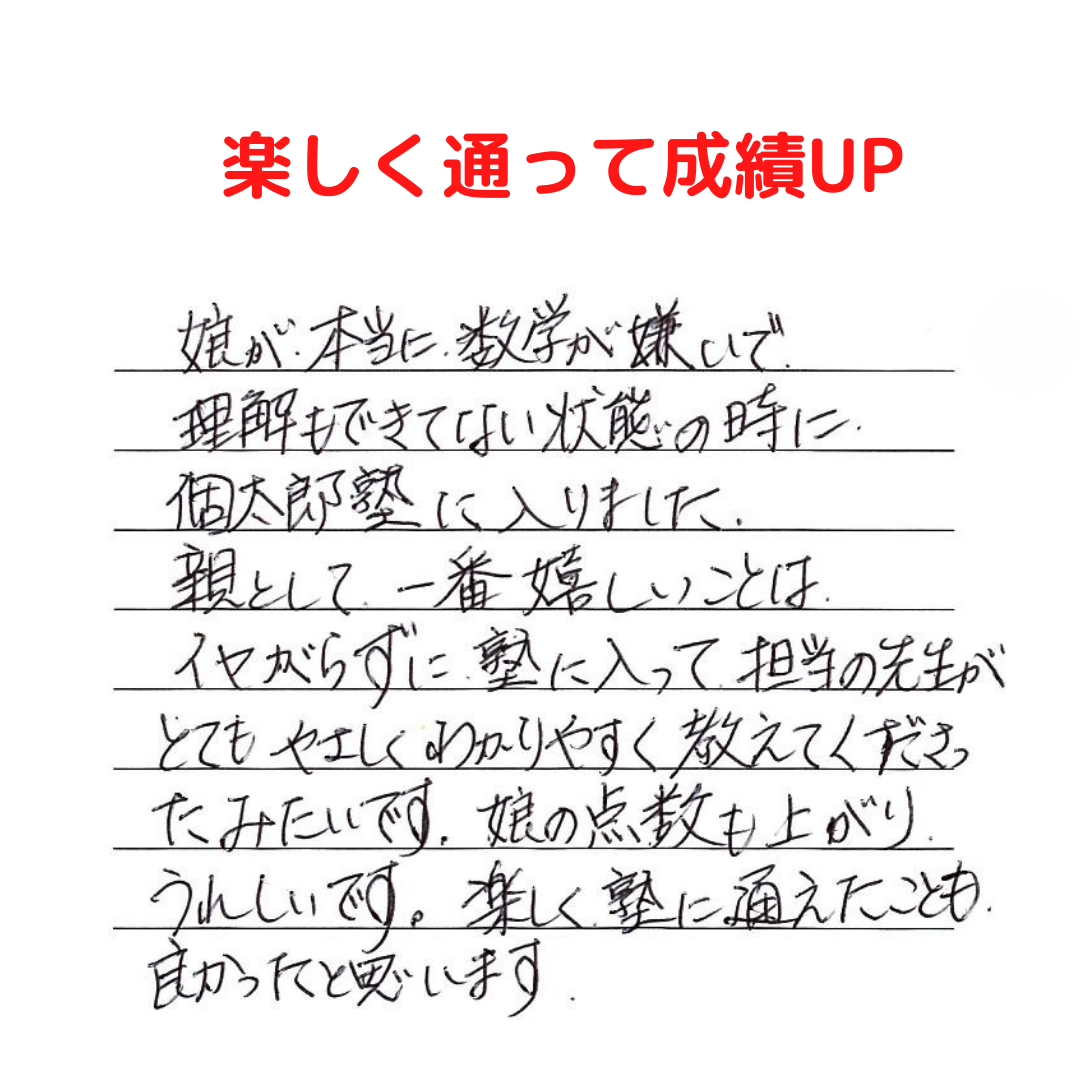 楽しく通って成績UP
娘が、本当に、数学が嫌いで、
理解もできてない状態の時に、
個太郎塾に入りました。
親として、一番嬉しいことは、
イヤがらずに、塾に入って、担当の先生が
とてもやさしくわかりやすく教えてくださっ
たみたいです。娘の点数も上がり、
うれしいです。楽しく、塾に通えたことも、
良かったと思います。